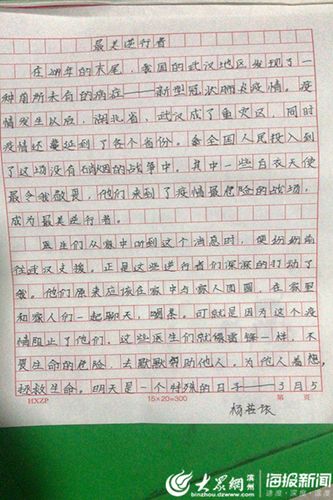 最美逆行者
在2019年的末尾，我国的武汉地区发现了一
种前所未有的病症——新型冠状肺炎疫情。疫
情发生以后，湖北省、武汉成了重灾区，同时
疫情还蔓延到了各个省份。全国人民投入到
了这场没有硝烟的战争中。其中一些白衣天使
最令我敬畏，他们来到了疫情最危险的战场，
成为最美逆行者。
医生们从家中听到这个消息时，便纷纷前
往武汉支援。正是这些逆行者们深深的打动了
我。他们原来应该在家中与家人团圆，在家里
和家人们一起聊天，喝茶。可就是因为这个疫
情阻止了他们，这些医生们就像一样，不
畏生命的危险，去默默帮助他人，为他人着想，
拯救生命。明天是一个特殊的日子——3月5
HXZP
15×20=300
第 页
杨
大众网 滨州
binzhou.dzwww.com
海报新闻
速度·深度·温度